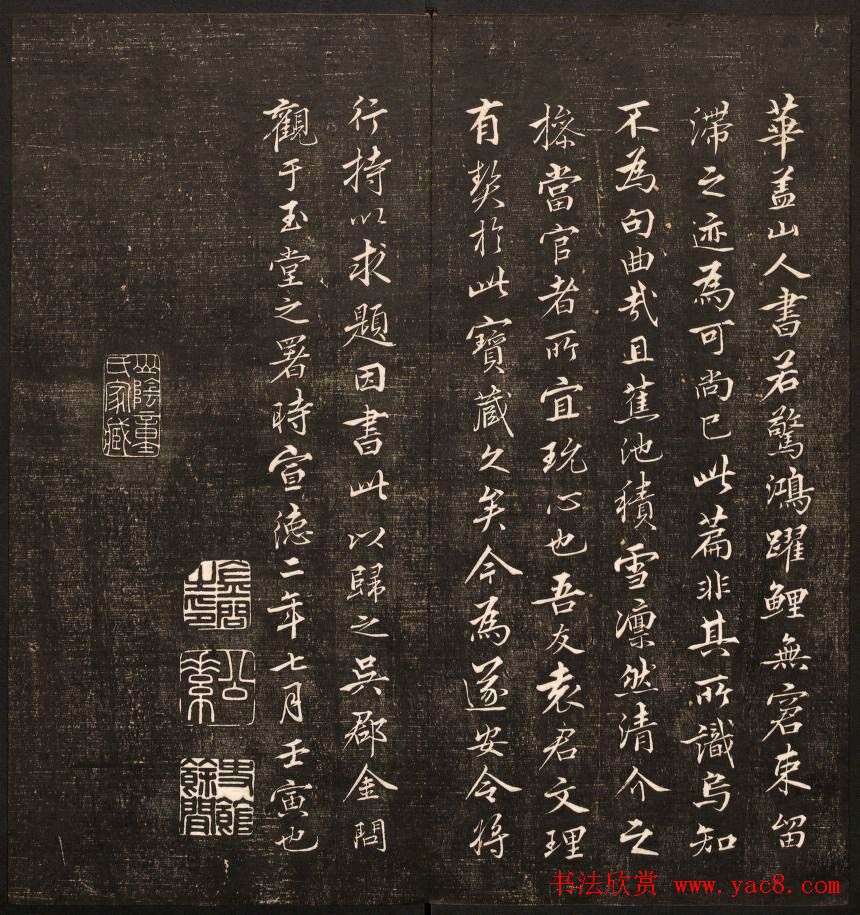 華盖山人書若驚鴻躍鯉無窘束留
滞之迹為可尚已此篇非其所識烏知
不為句曲哉且蕉池積雪凛然清介之
操當官者所宜玩心也吾友袁君文理
有契於此寶藏久矣今為遂安令将
行持以求題因書此以歸之吳郡金問
觀于玉堂之署時宣德二年七月壬寅也
山陰童
氏家藏
公素
史館
餘閒
书法欣赏 www.yac8.com